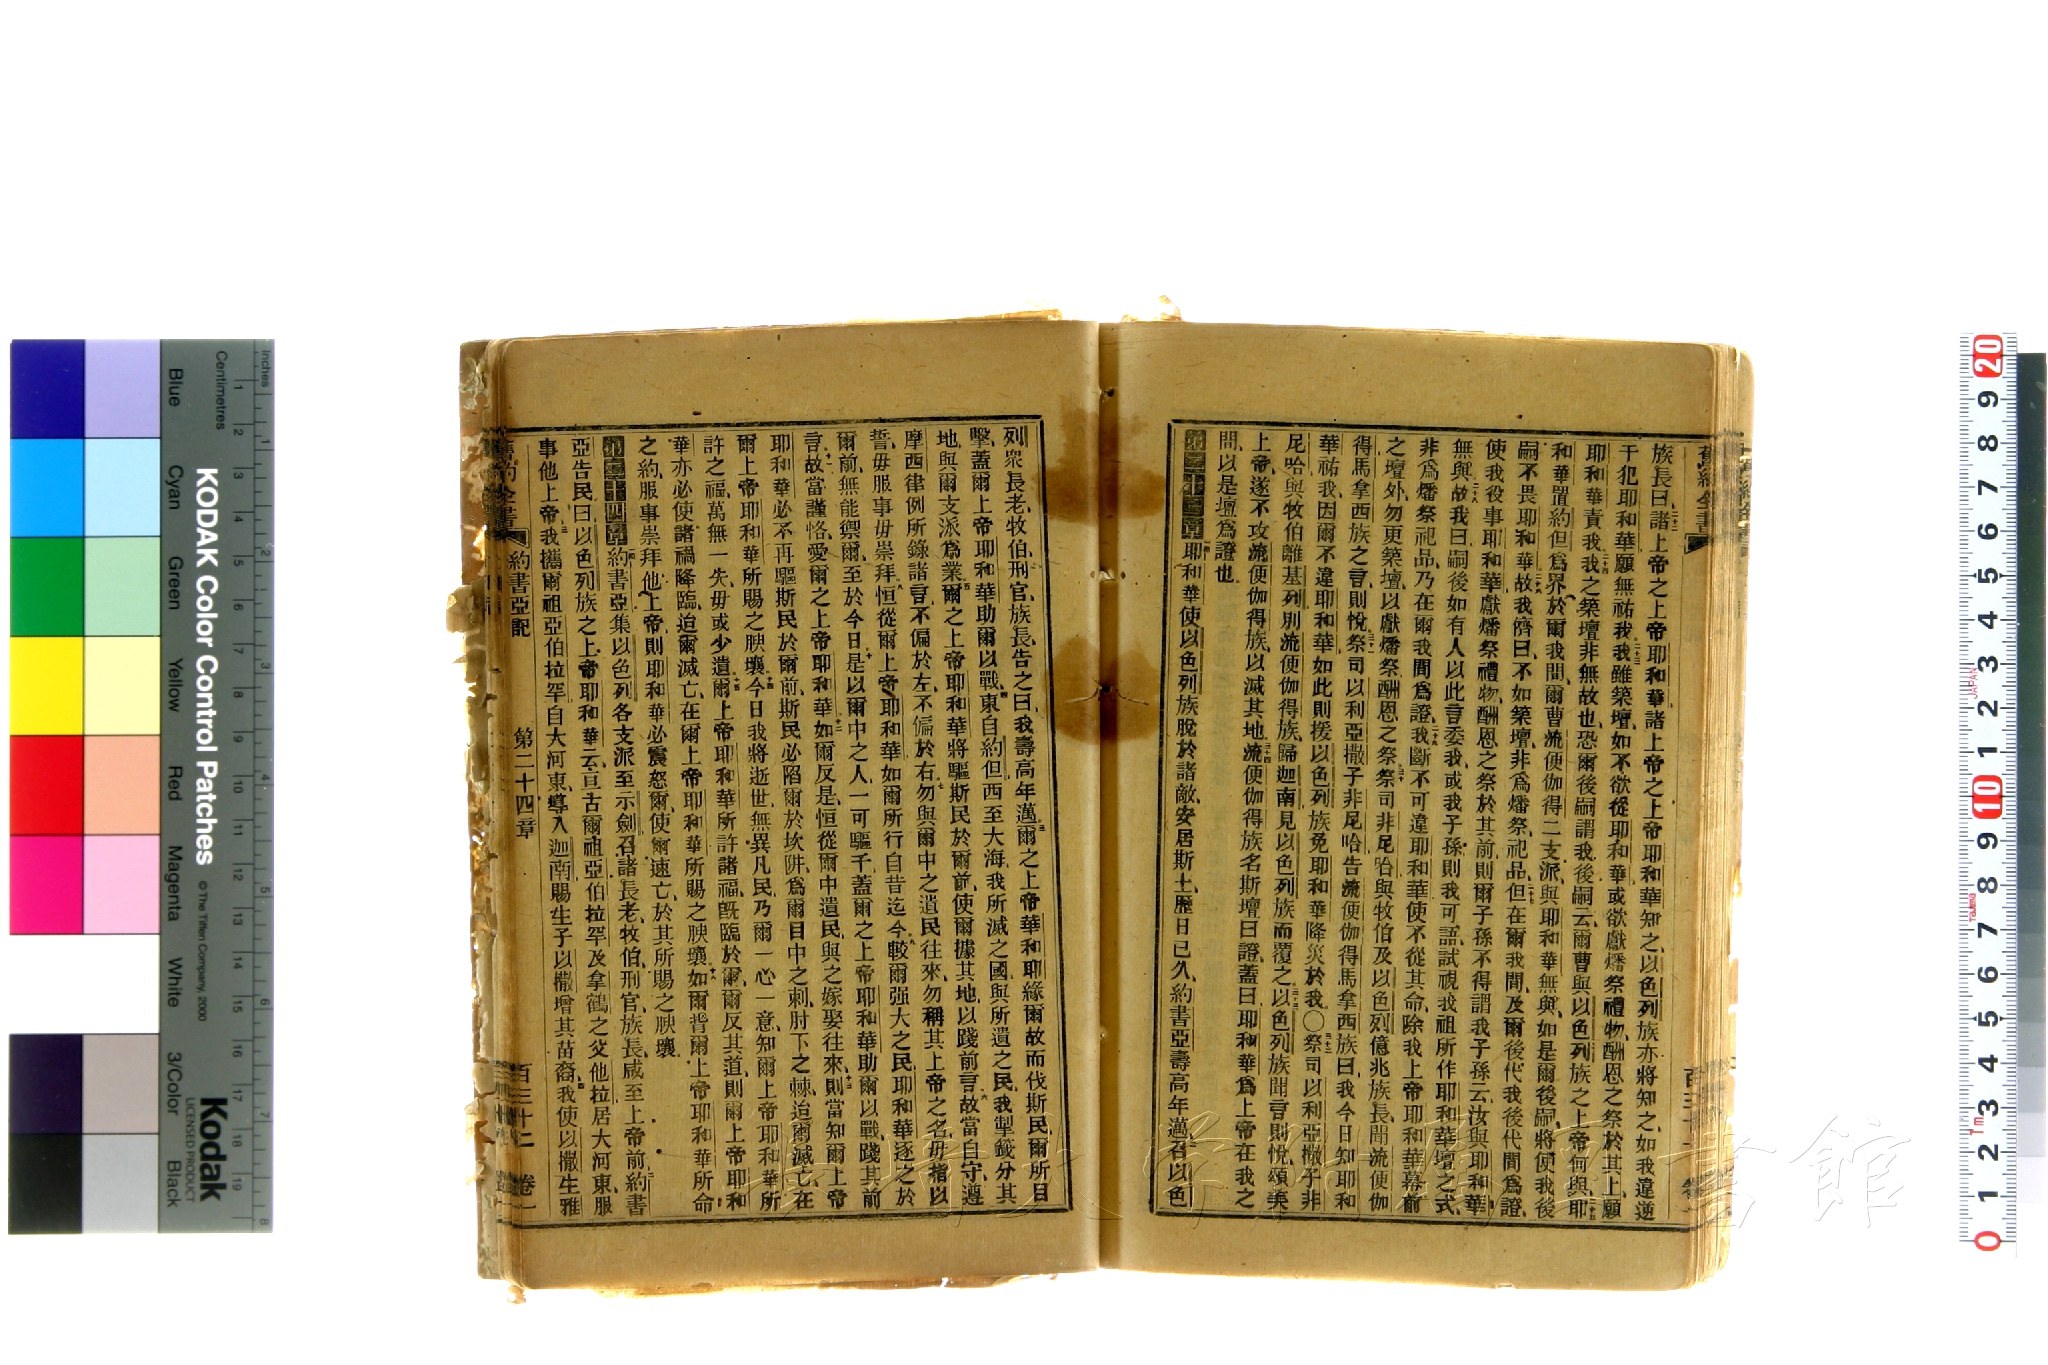 族長曰諸上帝之上帝耶和華諸上帝之上帝耶和華知之以色列族亦將知之如我違逆
干犯耶和華願無祐我我雖築壇如不欲從耶和華或欲獻燔祭禮物酬恩之祭於其上願
耶和華責我我之築壇非無故也恐爾後嗣謂我後嗣云爾曹與以色列族之上帝何與耶
和華置約但爲界於爾我間爾曹流便伽得二支派與耶和華無與如是爾後嗣將使我後
嗣不畏耶和華故我儕曰不如築壇非爲燔祭祀品但在爾我間及爾後代我後代間爲證
使我役事耶和華獻燔祭禮物酬恩之祭於其前則爾子孫不得謂我子孫云汝與耶和華
無與故我曰嗣後如有人以此言委我或我子孫則我可語試視我祖所作耶和華壇之式
非爲燔祭祀品乃在爾我間爲證我斷不可違耶和華使不從其命除我上帝耶和華幕前
之壇外勿更築壇以獻燔祭酬恩之祭祭司非尼哈與牧伯及以色列億兆族長聞流便伽
得馬拿西族之言則悅祭司以利亞撒子非尼哈告流便伽得馬拿西族曰我今日知耶和
華祐我因爾不違耶和華如此則援以色列族免耶和華降災於我〇祭司以利亞撒子非
尼哈與牧伯離基列別流便伽得族歸迦南見以色列族而覆之以色列族聞言則悅頌美
上帝遂不攻流便伽得族以滅其地流便伽得族名斯壇曰證蓋曰耶和華爲上帝在我之
間以是壇爲證也
第二十三章耶和華使以色列族脫於諸敵安居斯土歷日已久約書亞壽高年邁召以色
列衆長老牧伯刑官族長告之曰我壽高年邁爾之上帝華和耶緣爾故而伐斯民爾所目
擊蓋爾上帝耶和華助爾以戰東自約但西至大海我所滅之國與所遺之民我掣籤分其
地與爾支派爲業爾之上帝耶和華將驅斯民於爾前使爾據其地以踐前言故當自守遵
摩西律例所錄諸言不偏於左不偏於右勿與爾中之遺民往來勿稱其上帝之名毋指以
誓毋服事毋崇拜恒從爾上帝耶和華如爾所行自昔迄今較爾强大之民耶和華逐之於
爾前無能禦爾至於今日是以爾中之人一可驅千蓋爾之上帝耶和華助爾以戰踐其前
言故當謹恪愛爾之上帝耶和華如爾反是恒從爾中遺民與之嫁娶往來則當知爾上帝
耶和華必不再驅斯民於爾前斯民必陷爾於坎阱爲爾目中之刺肘下之棘迨爾滅亡在
爾上帝耶和華所賜之腴壤今日我將逝世無異凡民乃爾一心一意知爾上帝耶和華所
許之福萬無一失毋或少遺爾上帝耶和華所許諸福旣臨於爾爾反其道則爾上帝耶和
華亦必使諸禍降臨迨爾滅亡在爾上帝耶和華所賜之腴壤如爾背爾上帝耶和華所命
之約服事崇拜他上帝則耶和華必震怒爾使爾速亡於其所賜之腴壤
第二十四章約書亞集以色列各支派至示劍召諸長老牧伯刑官族長咸至上帝前約書
亞告民曰以色列族之上帝耶和華云亘古爾祖亞伯拉罕及拿鶴之父他拉居大河東服
事他上帝我攜爾祖亞伯拉罕自大河東導入迦南賜生子以撒增其苗裔我使以撒生雅
舊約全書 約書亞記 第二十四章 百三十二 卷一